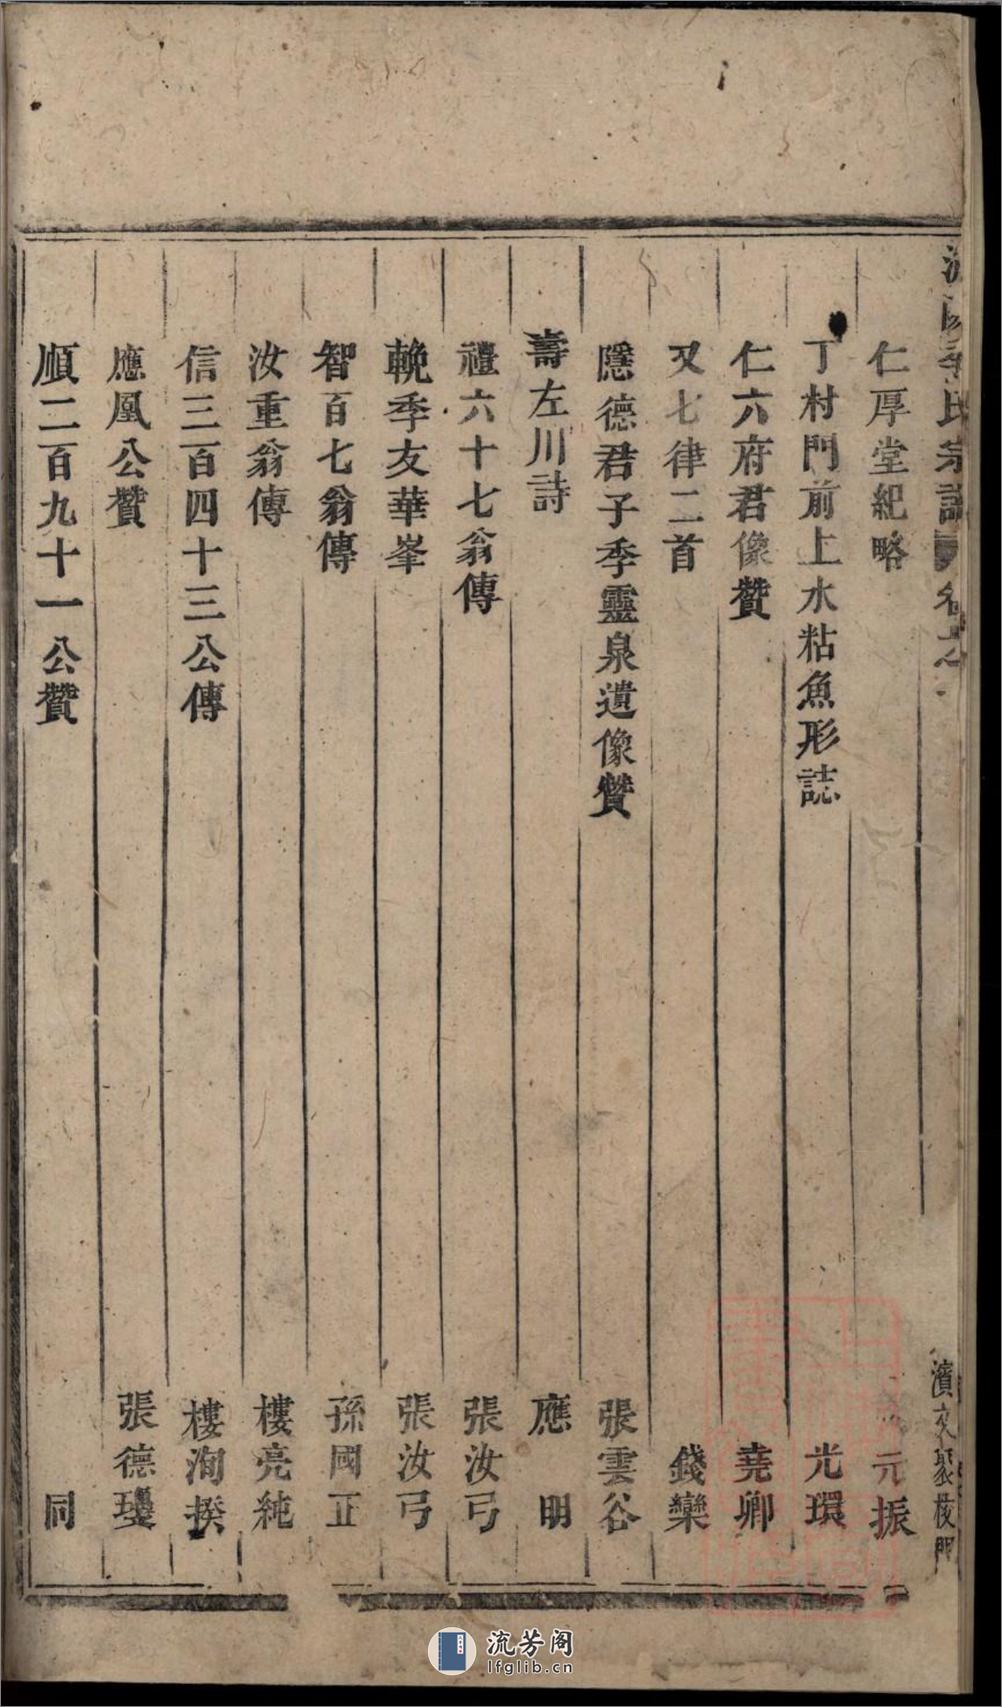 氏宗譜
仁厚堂紀略 元振
丁村門前上水粘魚形誌 光環
仁六府君像贊 堯卿
又七律二首 錢欒
隱德君子季靈泉遺像贊 張雲谷
壽左川詩 應明
禮六十七翁傳 張汝弓
輓季友華峯 張汝弓
智百七翁傳 孫國正
汝重翁傳 樓亮純
信三百四十三公傳 樓洵揆
應凰公贊 張德
順二百九十一公贊 同
流芳阁
lfglib.cn